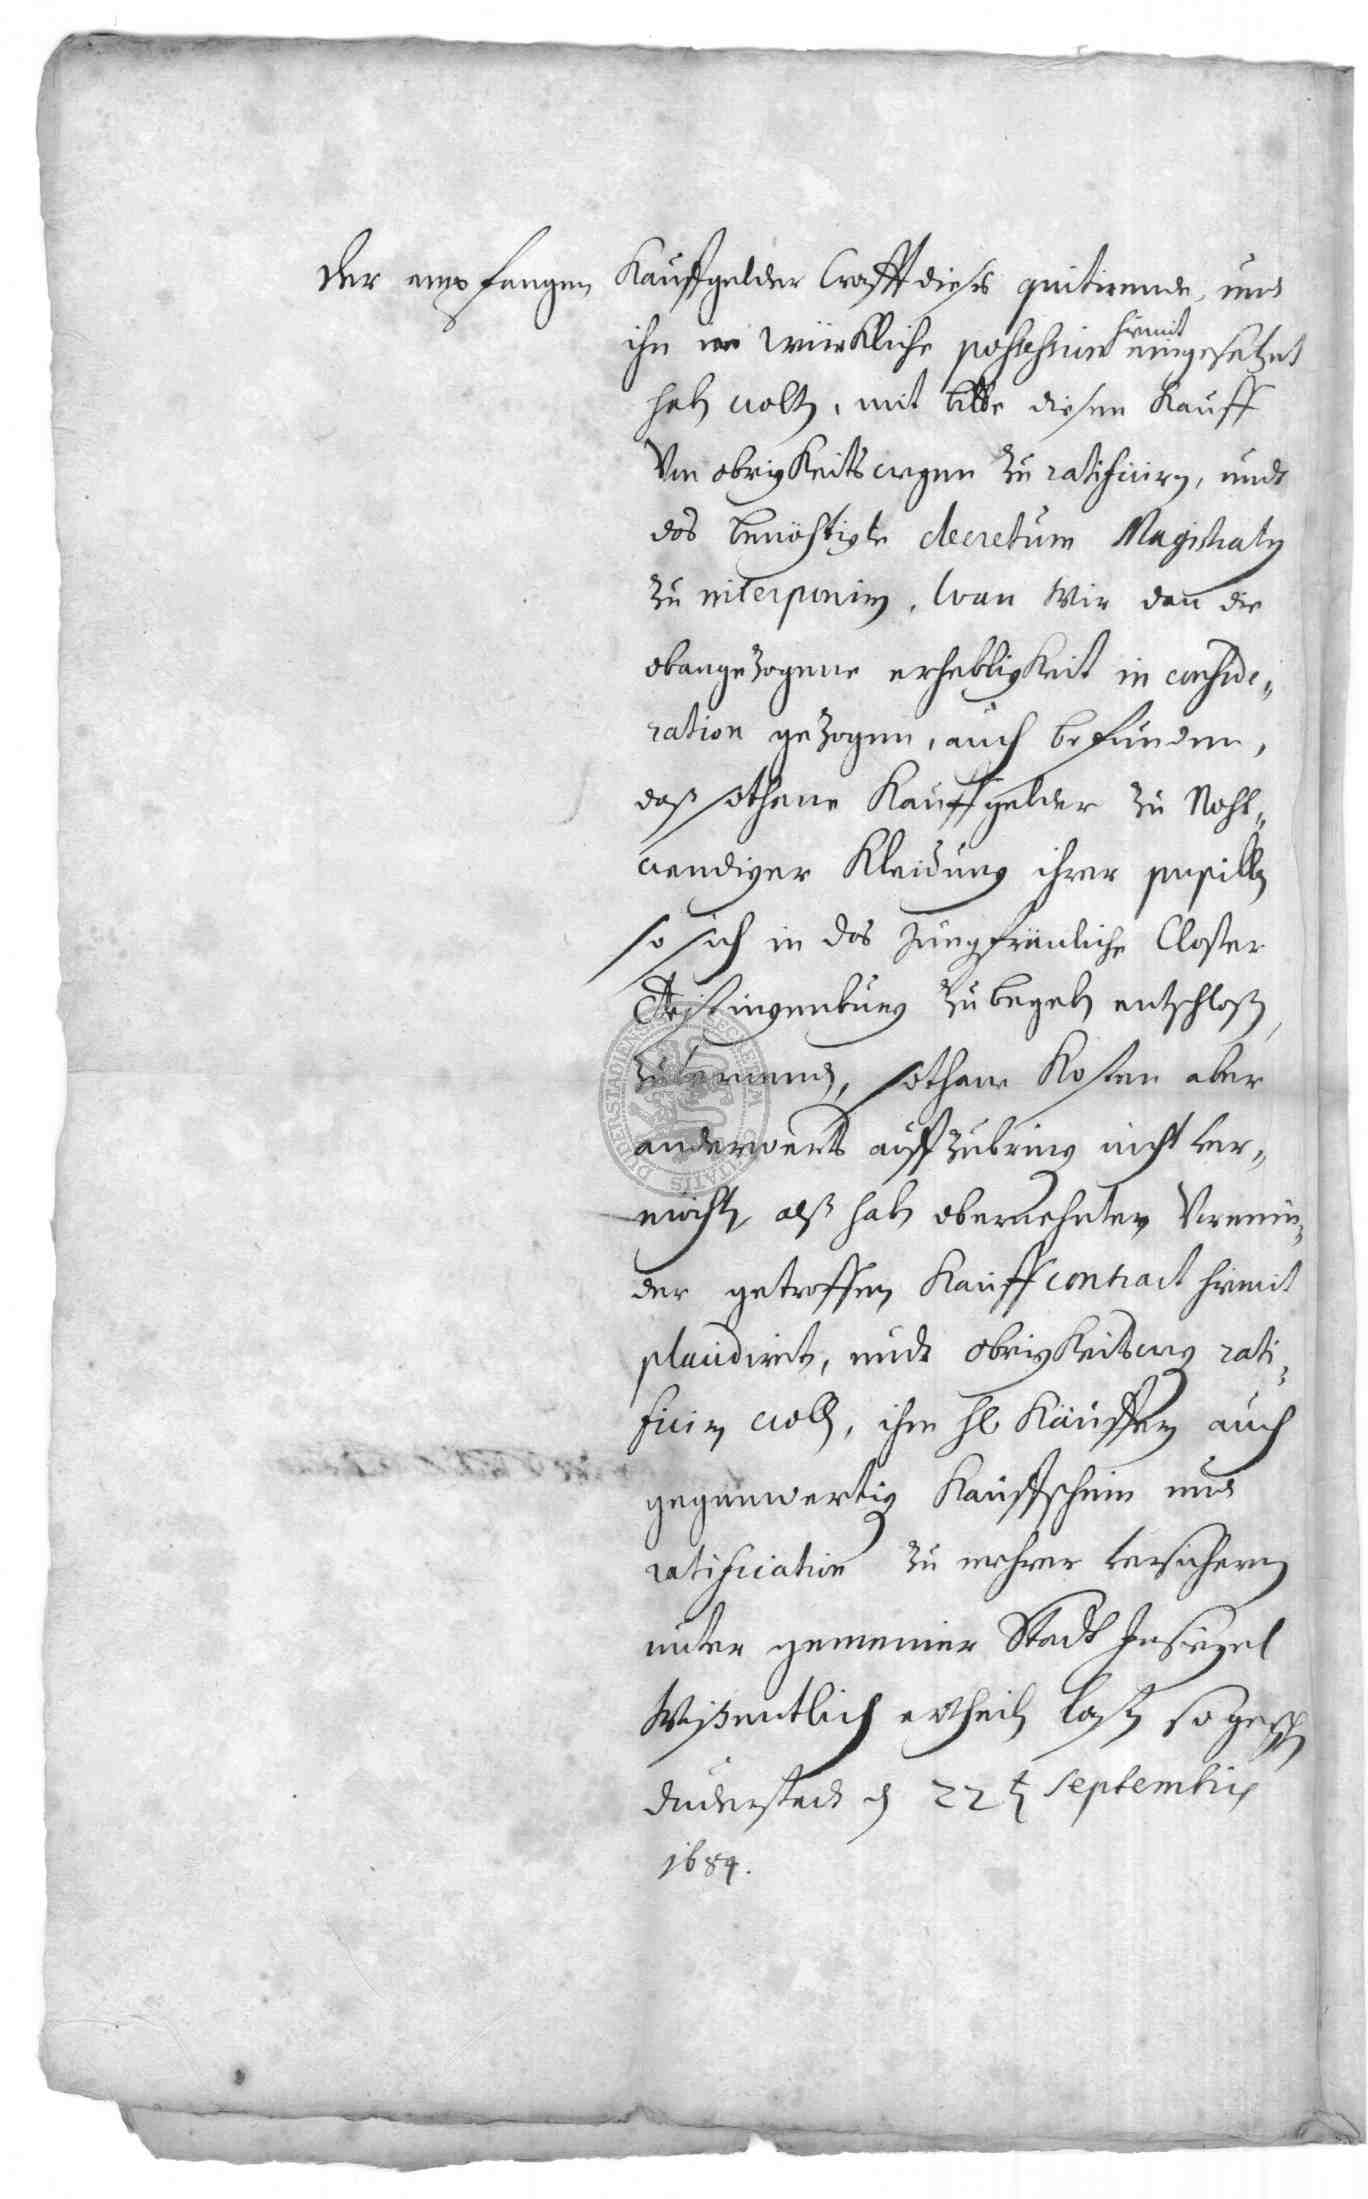 der empfangen Kauffgelder Crafft dieses quitirende, und
ihn in würkliche possession hirmit eingesetzet
hab wolt, mit bitte diesen Kauff
Von obrigkeits wegen zu ratificirn, undt
das benöhtigte decretum Magistratus
zu interponirn, Wan Wir dan die
obangezogene erhebligkeit in conside„
ration gezogen, auch befunden,
daß sothane Kauffgelder zu Noht„
wendiger Kleidung ihrer pupilln
so sich in das Jungfräuliche Closter
zubegeb entschloß,
sothane Kosten aber
anderwerts auffzubring nicht ver„
möcht, alß hab obernehnter Vormün„
der getroffen Kauffcontract hirmit
placidiret, undt obrigkeitsweg rati„
ficirn woll, ihm H. Käuffern auch
gegenwertig Kauffschein und
ratification zu mehrer versicherung
unter gemeiner Stadt Insiegel
Wißentlich ertheil laß so gesch
duderstadt d 22t Septembris
1684.
DUDERSTADIENS SECRETUM CIVITATIS